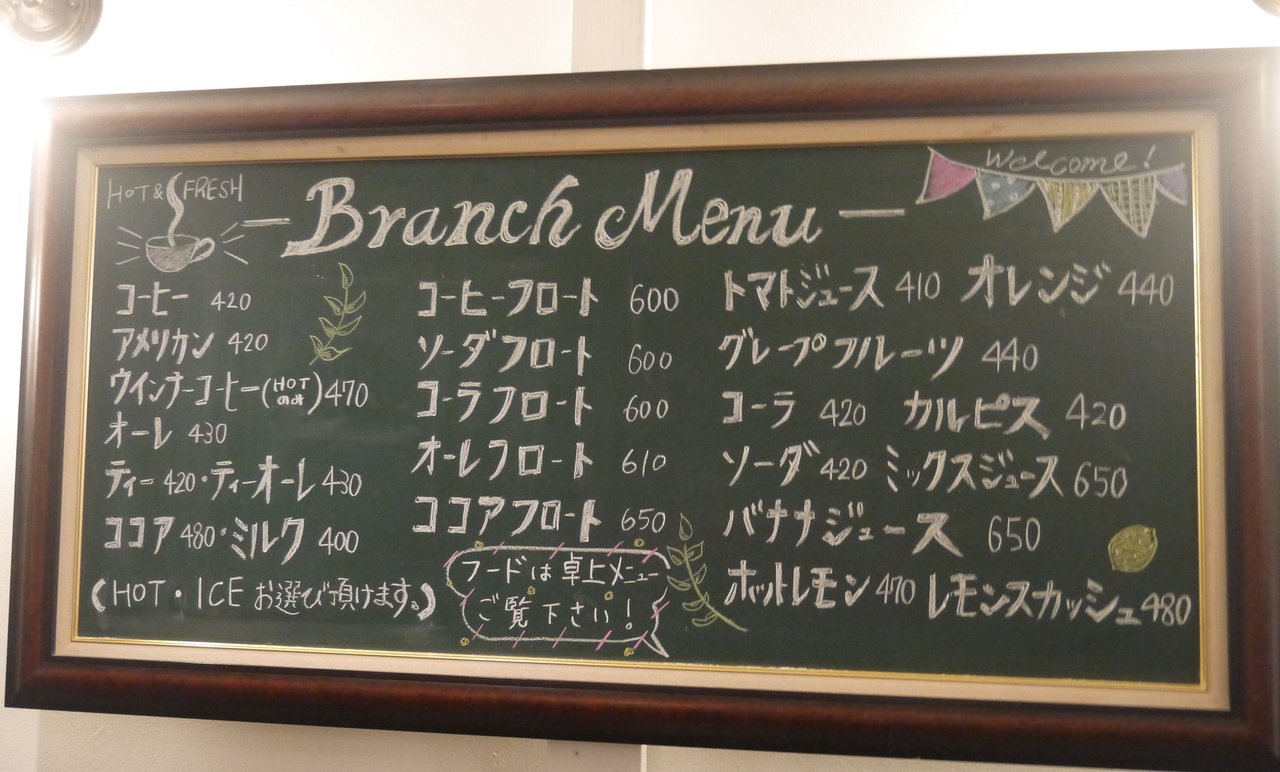 HOT & FRESH
Branch Menu
Welcome!
コーヒー 420
アメリカン 420
ウインナーコーヒー(HOTのみ)470
オーレ 430
ティー 420・ティーオーレ 430
ココア 480・ミルク 400
(HOT・ICE お選び頂けます。)
コーヒーフロート 600
ソーダフロート 600
コーラフロート 600
オーレフロート 610
ココアフロート 650
フードは卓上メニュー
ご覧下さい!
トマトジュース 410 オレンジ 440
グレープフルーツ 440
コーラ 420 カルピス 420
ソーダ 420 ミックスジュース 650
バナナジュース 650
ホットレモン 470 レモンスカッシュ 480